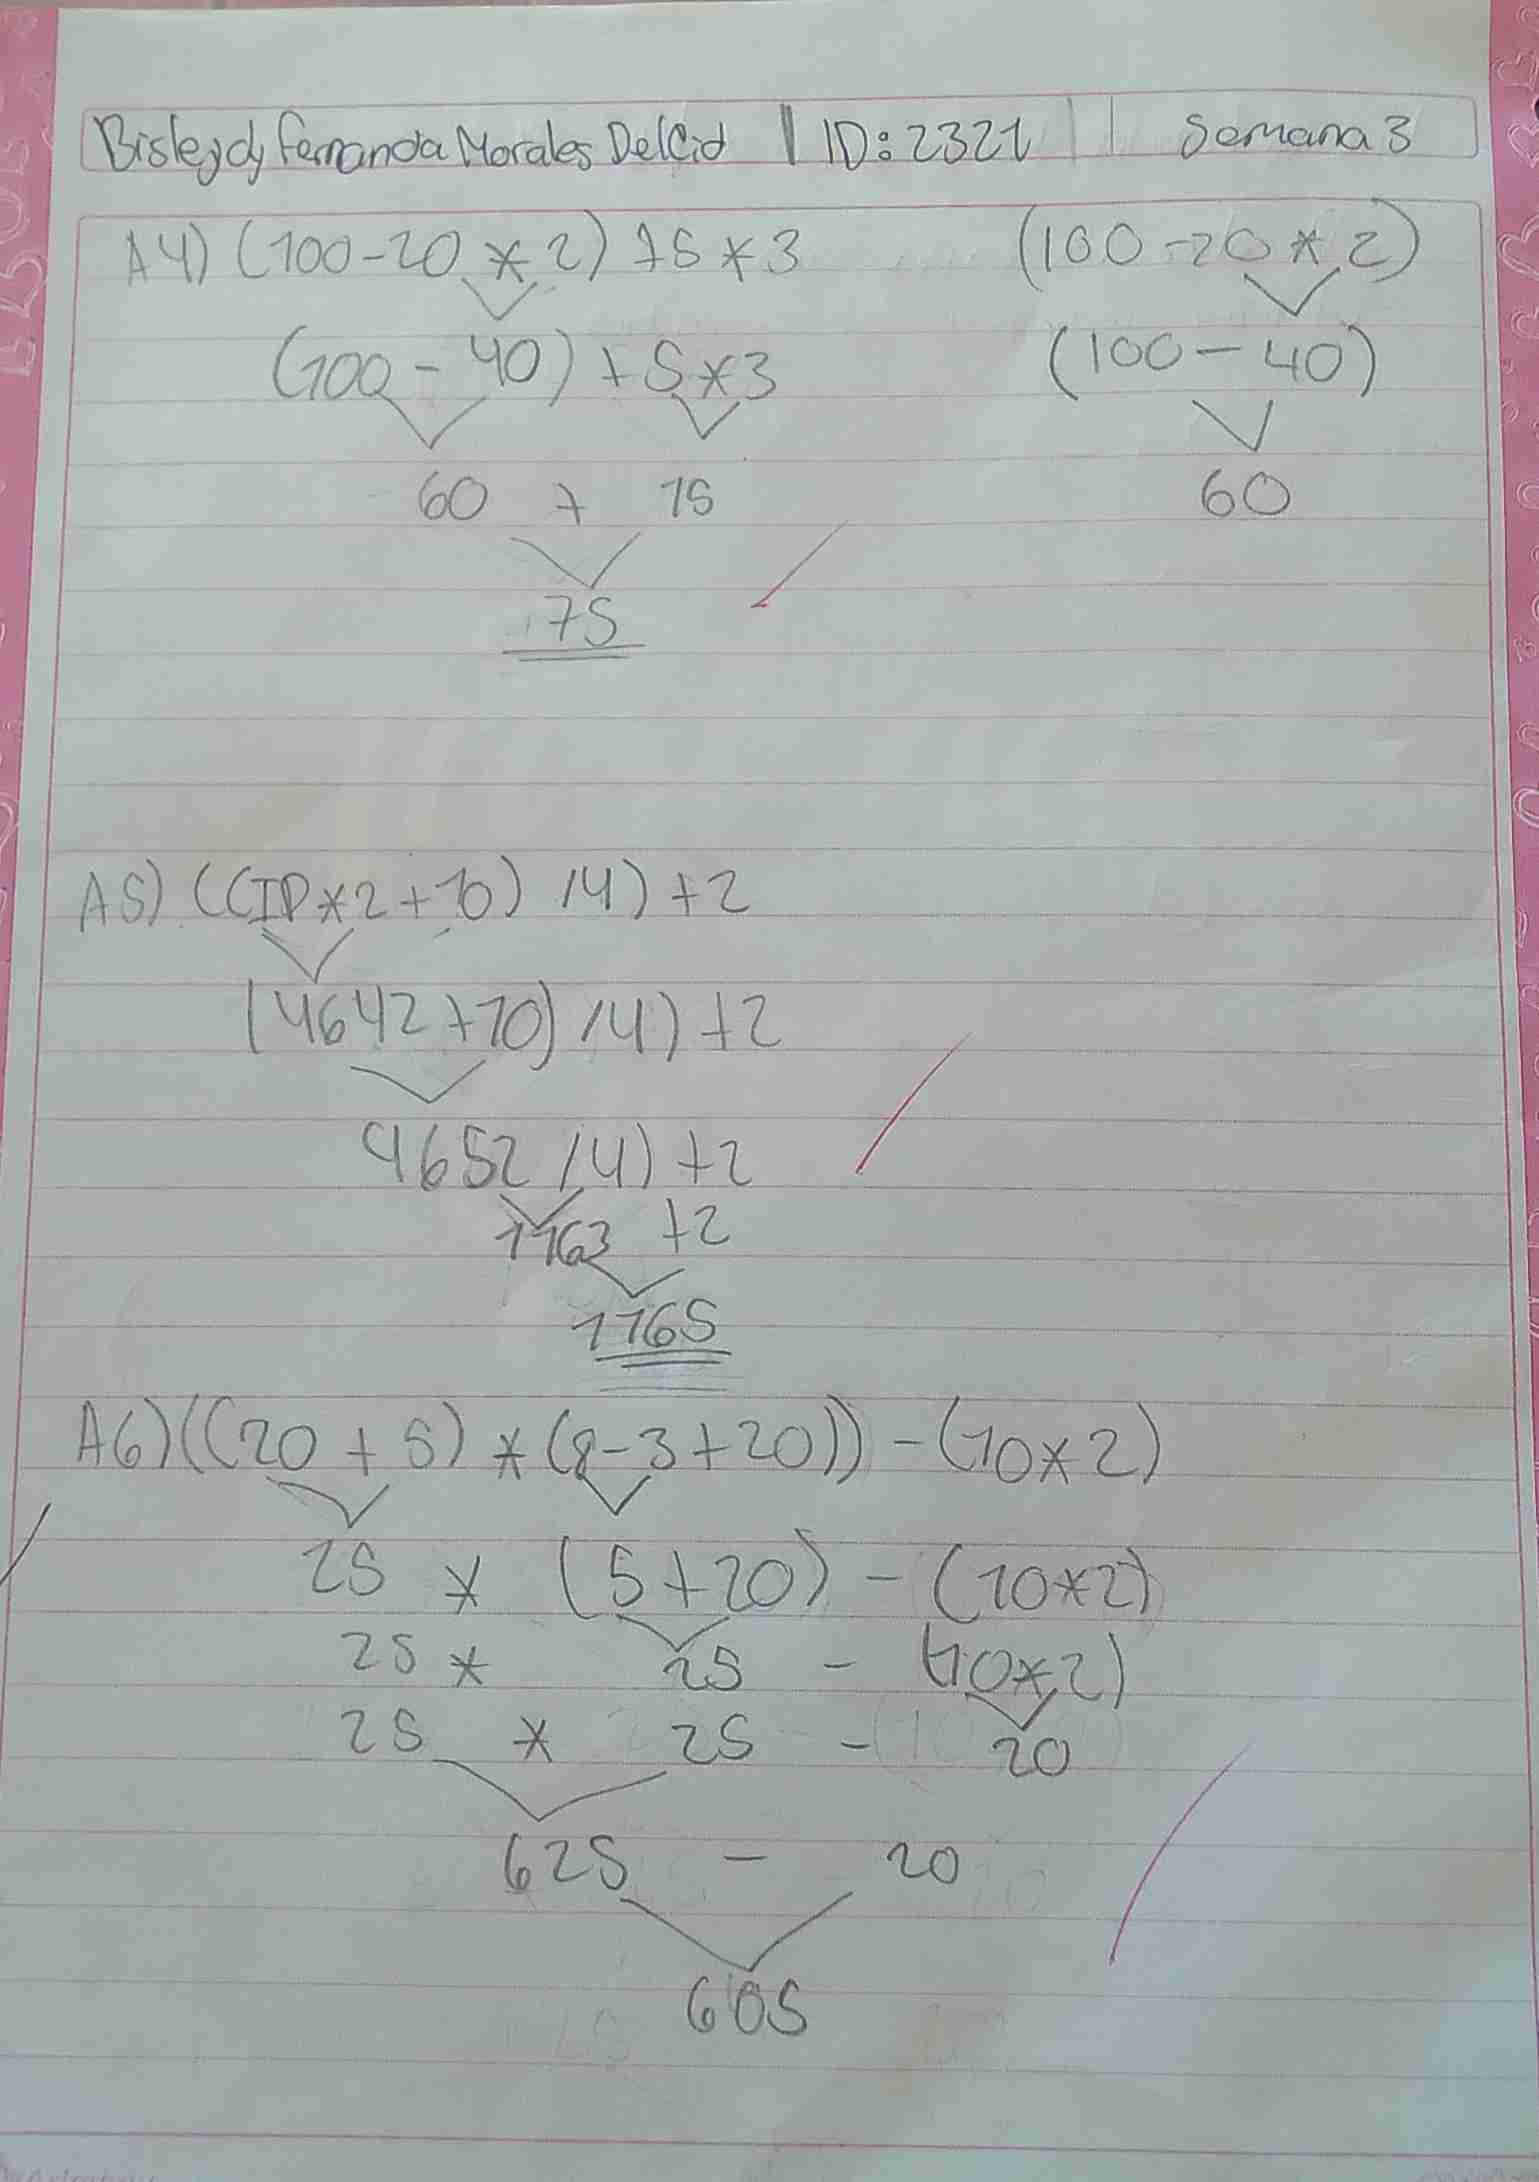 Bisleydy Fernanda Morales DelCid ID: 2321 Semana 3
A4) (100-20 * 2) + 5 * 3 (100 - 20 * 2)
(100 - 40) + 5 * 3 (100 - 40)
60 + 15 60
75
A5) ((ID * 2 + 10) / 4) + 2
(4642 + 10) / 4) + 2
4652 / 4) + 2
1163 + 2
1165
A6) ((20 + 5) * (8 - 3 + 20)) - (10 * 2)
25 * (5 + 20) - (10 * 2)
25 * 25 - (10 * 2)
25 * 25 - 20
625 - 20
605